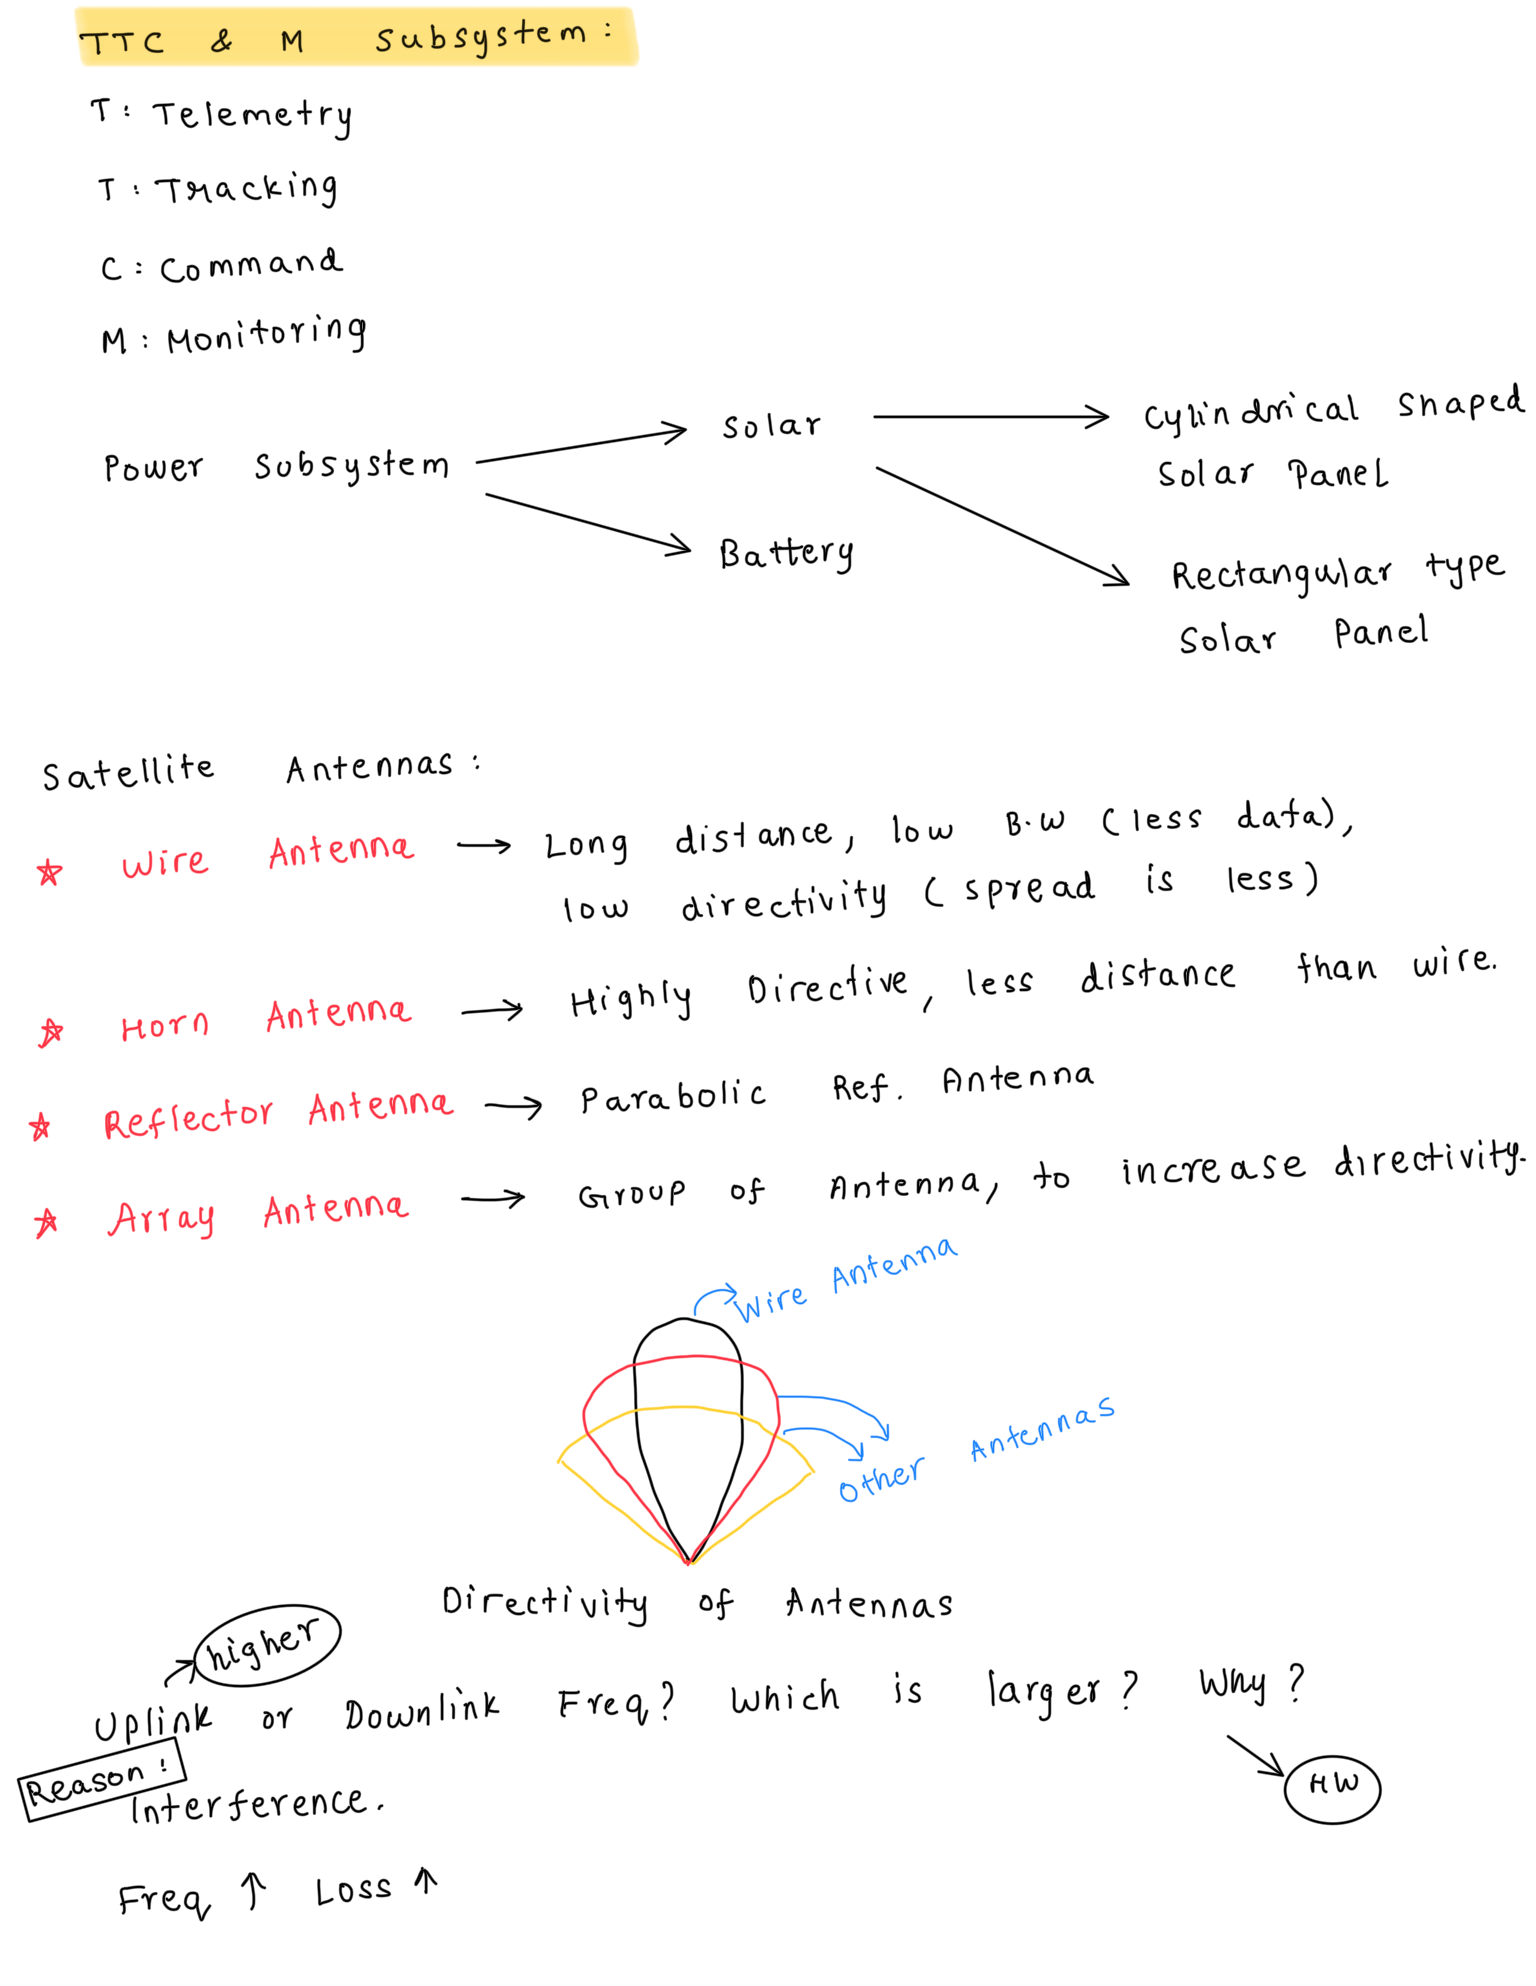 TTC & M Subsystem :
T : Telemetry
T : Tracking
C : Command
M : Monitoring
Power Subsystem
Solar
Battery
Cylindrical Shaped
Solar Panel
Rectangular type
Solar Panel
Satellite Antennas :
☆ Wire Antenna → Long distance, low B.W (less data),
low directivity (spread is less)
☆ Horn Antenna → Highly Directive, less distance than wire.
☆ Reflector Antenna → Parabolic Ref. Antenna
☆ Array Antenna → Group of Antenna, to increase directivity.
Wire Antenna
Other Antennas
Directivity of Antennas
higher
Uplink or Downlink Freq? Which is larger? Why?
Reason :
Interference.
HW
Freq ↑ Loss ↑